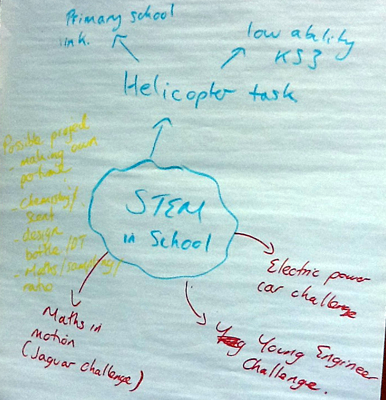 Primary school
link.
low ability
KS3
Helicopter task
Possible project
- making own
perfume
- chemistry/
scent
- design
bottle/DT
- Maths/sampling/
ratio
STEM
in School
Electric power
car challenge
Young Engineer
Challenge.
Maths in
motion
(Jaguar challenge)